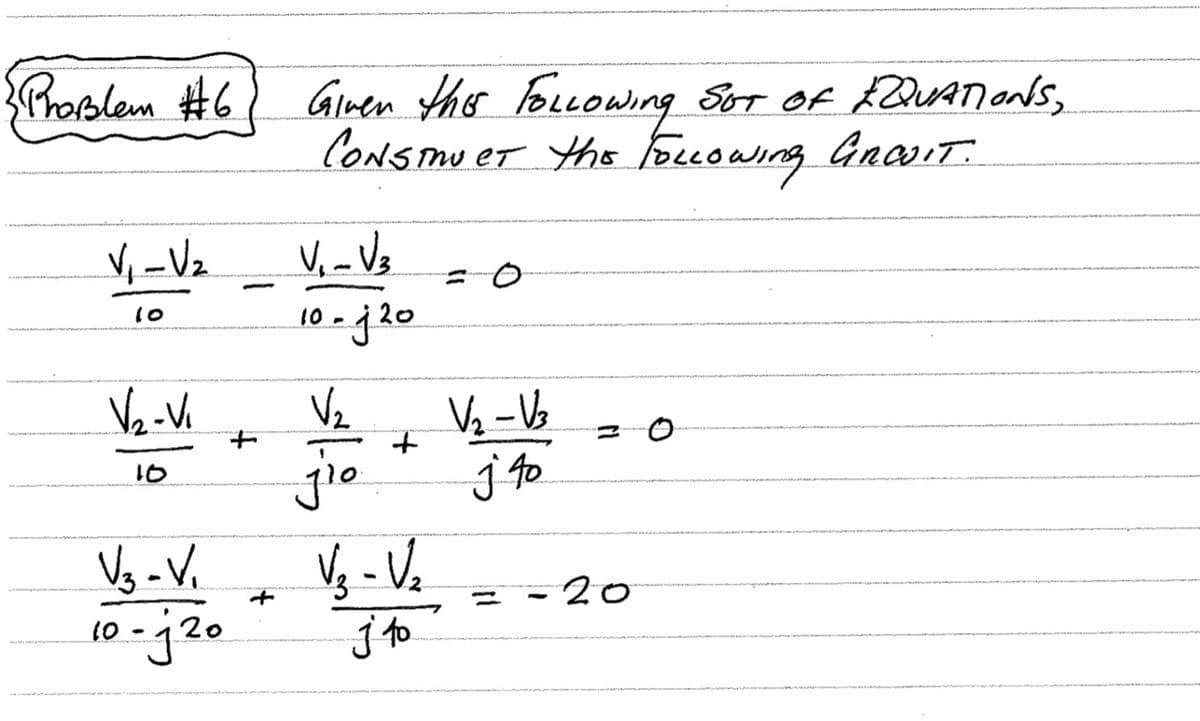 Problem #6 Given the Following Set of Equations,
Construct the Following Circuit.
V₁-V₂/10 - V₁-V₃/10-j20 = 0
V₂-V₁/10 + V₂/j10 + V₂-V₃/j40 = 0
V₃-V₁/10-j20 + V₃-V₂/j40 = -20